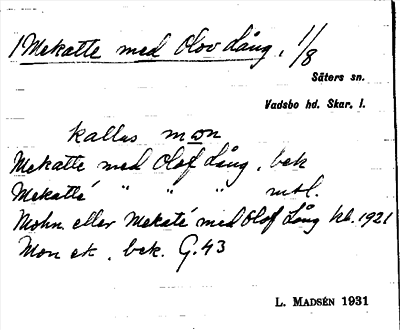 1 Mekatte med Olov Lång. 1/8
Säters sn.
Vadsbo hd. Skar. l.
kallas mon
Mekatte med Olof Lång. bek
Mekatté " " " mtl.
Mohn eller Mekaté med Olof Lång kb. 1921
Mon ek. bek. G. 43
L. MADSÉN 1931